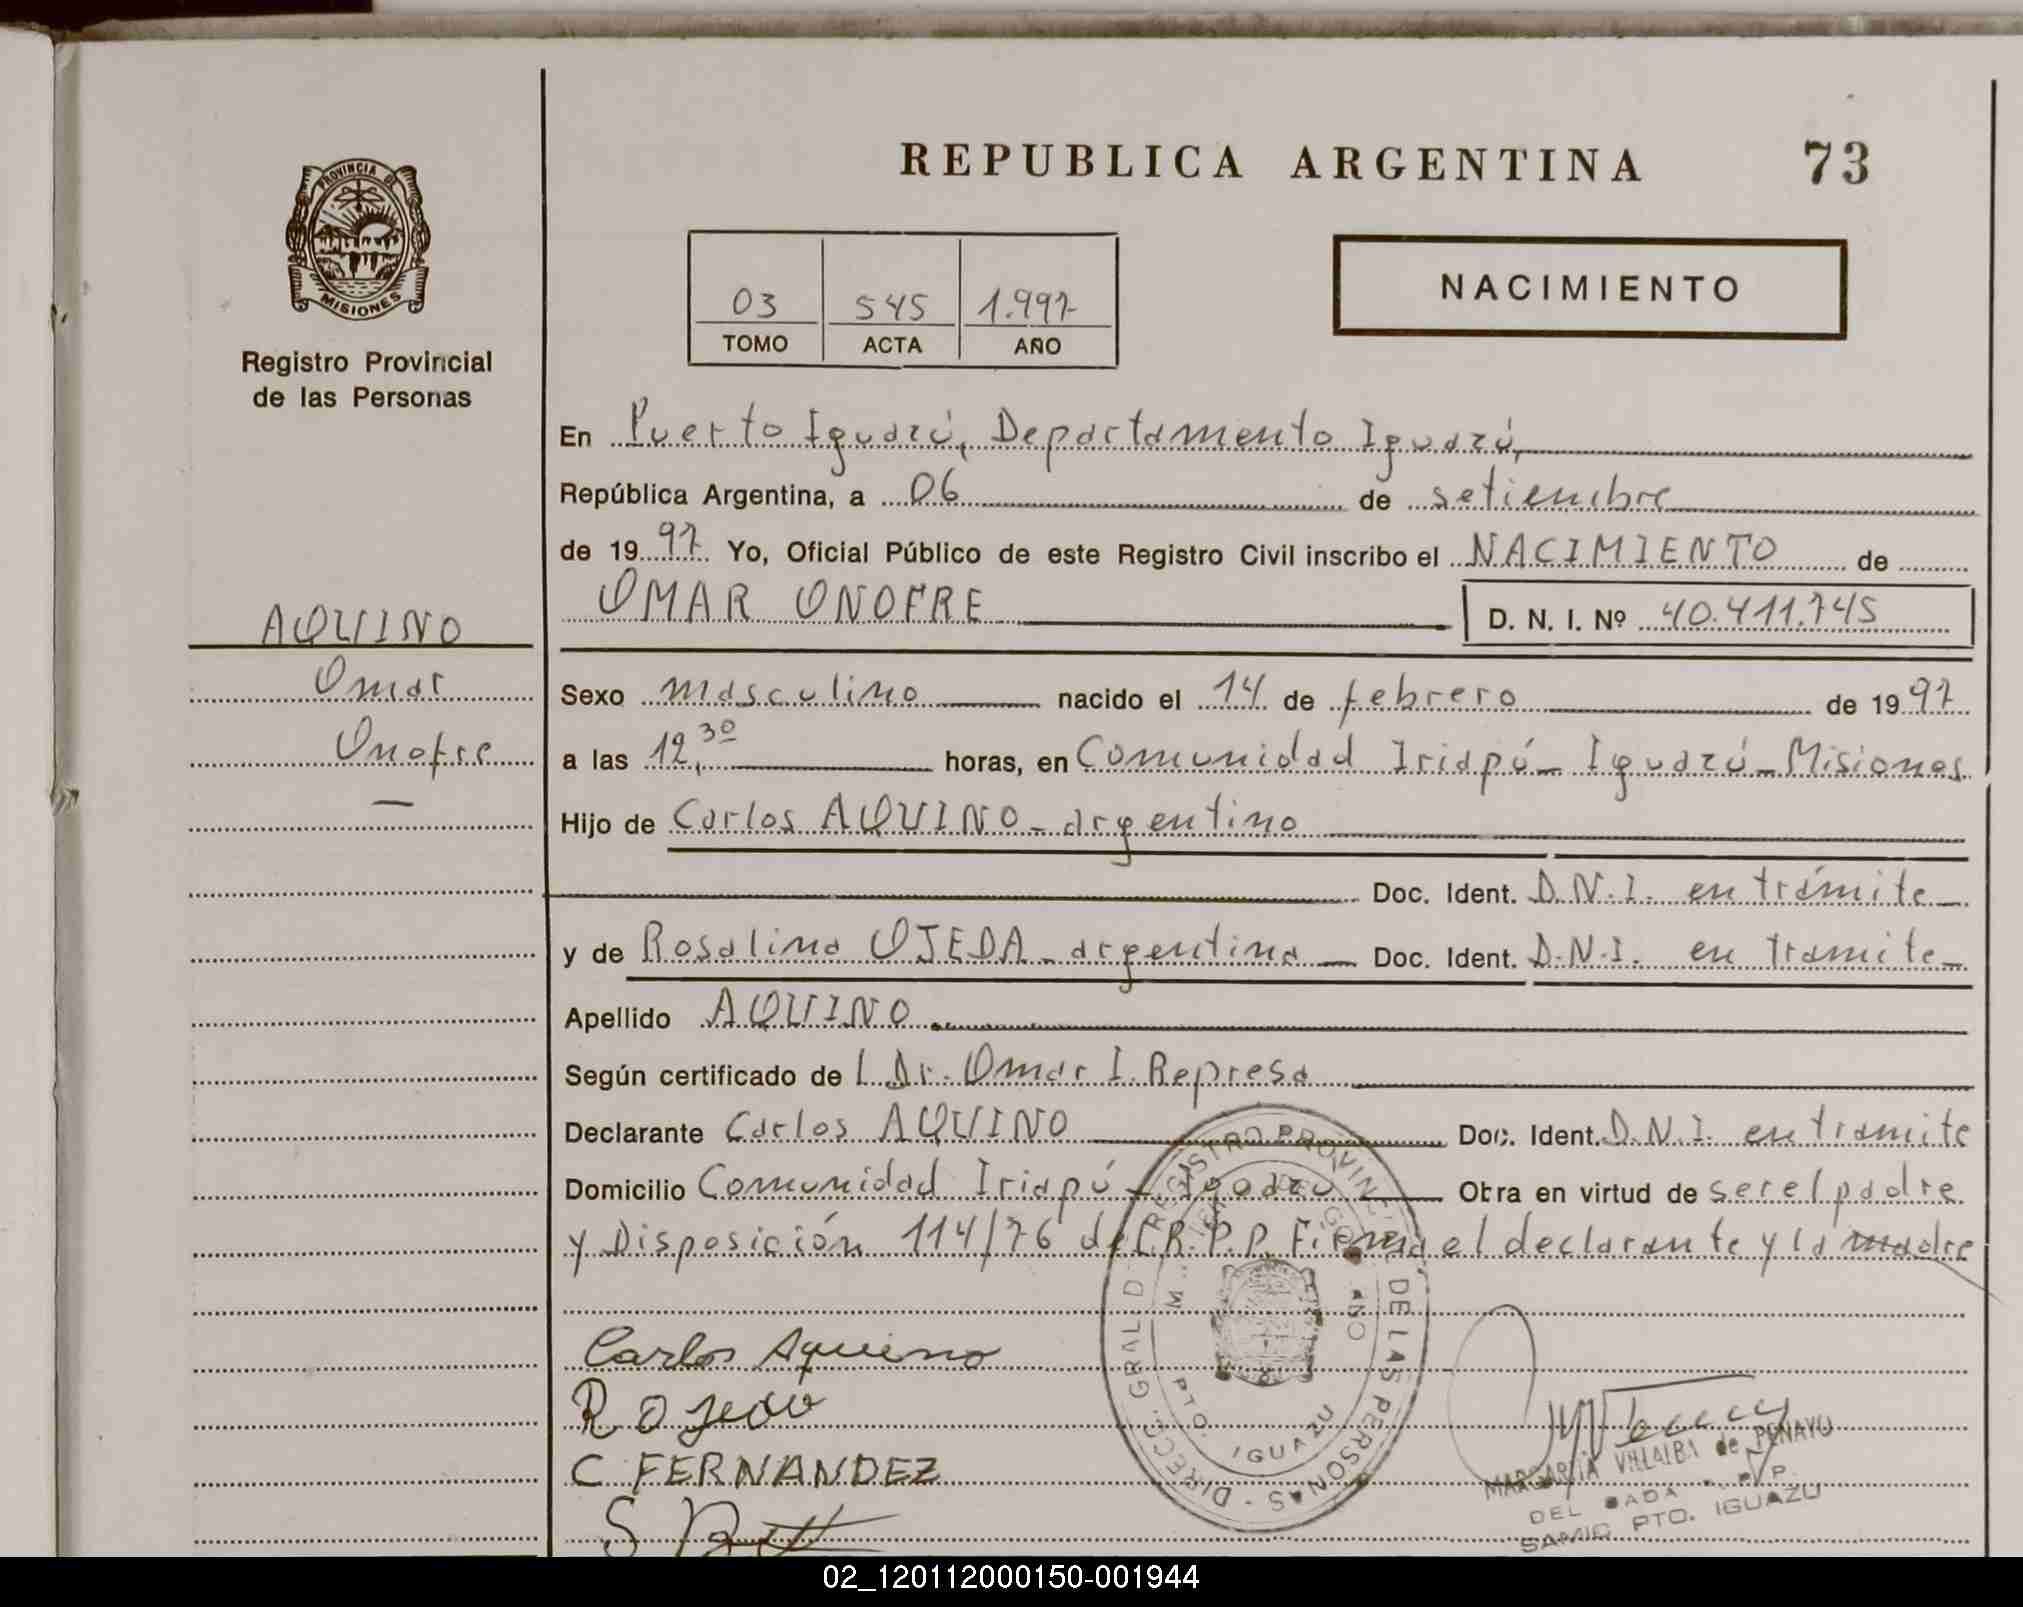 REPUBLICA ARGENTINA 73
PROVINCIA DE
MISIONES
Registro Provincial
de las Personas
03 545 1.997
TOMO ACTA AÑO
NACIMIENTO
En Puerto Iguazú, Departamento Iguazú,
República Argentina, a 06 de setiembre
de 1997 Yo, Oficial Público de este Registro Civil inscribo el NACIMIENTO de
OMAR ONOFRE D. N. I. Nº 40.411.745
AQUINO
Omar
Onofre
Sexo masculino nacido el 14 de febrero de 1997
a las 12,30 horas, en Comunidad Iriapú - Iguazú - Misiones
Hijo de Carlos AQUINO - argentino
Doc. Ident. D.N.I. en trámite
y de Rosalina OJEDA - argentina Doc. Ident. D.N.I. en tramite
Apellido AQUINO
Según certificado de L Dr. Omar I. Represa
Declarante Carlos AQUINO Doc. Ident. D.N.I. en tramite
Domicilio Comunidad Iriapú - Iguazú Obra en virtud de ser el padre
y Disposición 114/76 del R.P.P. Firma el declarante y la madre
Carlos Aquino
R Ojeda
C FERNANDEZ
DIRECC. GRAL D REGISTRO PROVINCIAL DE LAS PERSONAS
PTO. IGUAZU
MARGARITA VILLALBA de PENAYO
SAMIC PTO. IGUAZU
02_120112000150-001944